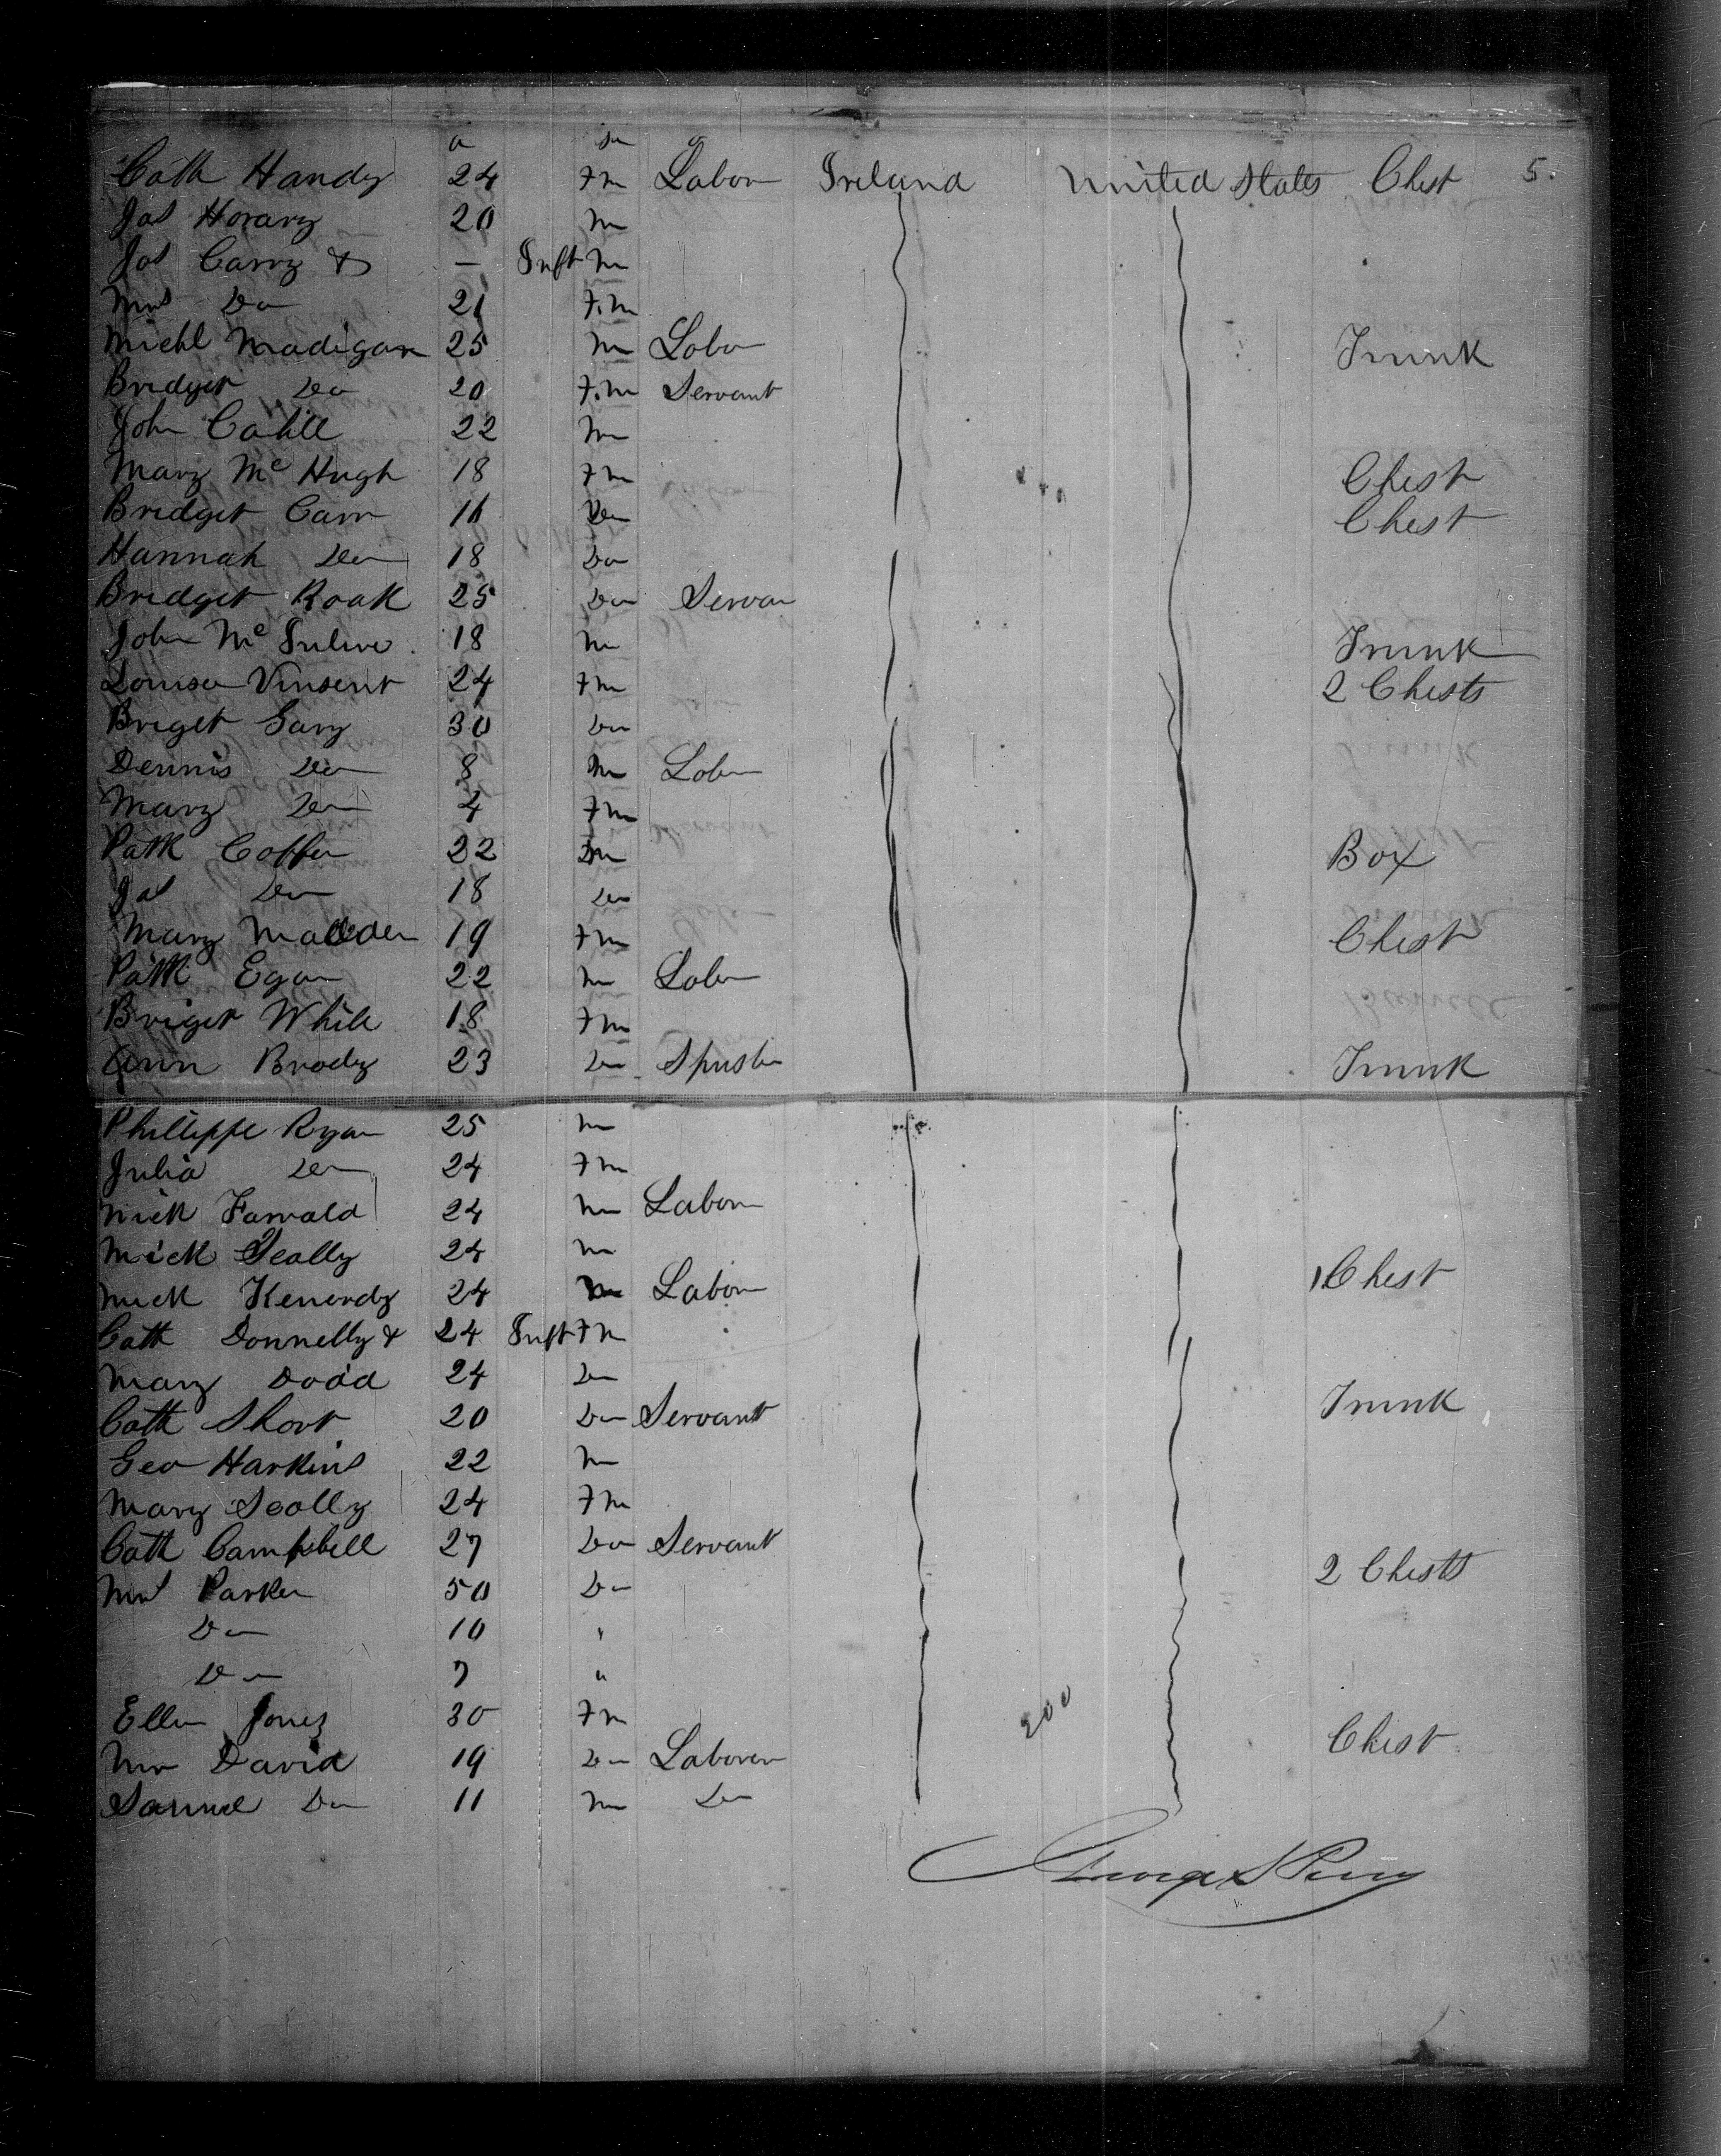 Cath Handy 24 Fm Labor Ireland United States Chest 5.
Jas Horary 20 m
Jas Carry & — Inft m
Mrs Do 21 F.m
Michl Madigan 25 m Labor Trunk
Bridget Do 20 F.m Servant
John Cahill 22 m
Mary Mc Hugh 18 Fm Chest
Bridget Carr 16 Do Chest
Hannah Do 18 Do
Bridget Roak 25 Do Servan
John Mc 18 m Trunk
Louisa Vinsent 24 Fm 2 Chests
Briget Gary 30 Do
Dennis Do 8 m Labor
Mary Do 4 Fm
Patk Coffer 22 m Box
Jas Do 18 Do
Mary Madden 19 Fm Chest
Patk Egan 22 m Labor
Briget While 18 Fm
Ann Brody 23 Do Spinster Trunk
Phillippe Ryan 25 m
Julia Do 24 Fm
Mick Farrald 24 m Labor
Mick Scally 24 m
Mick Kenerdy 24 m Labor 1 Chest
Cath Donnelly & 24 Inft Fm
Mary Dodd 24 Do
Cath Short 20 Do Servant Trunk
Geo Harkins 22 m
Mary Scally 24 Fm
Cath Campbell 27 Do Servant
Mrs Parker 50 Do 2 Chests
Do 10 "
Do 7 "
Ellen Jones 30 Fm 200
Mrs David 19 Do Laborer Chest
Samuel Do 11 m Do
George S Perry